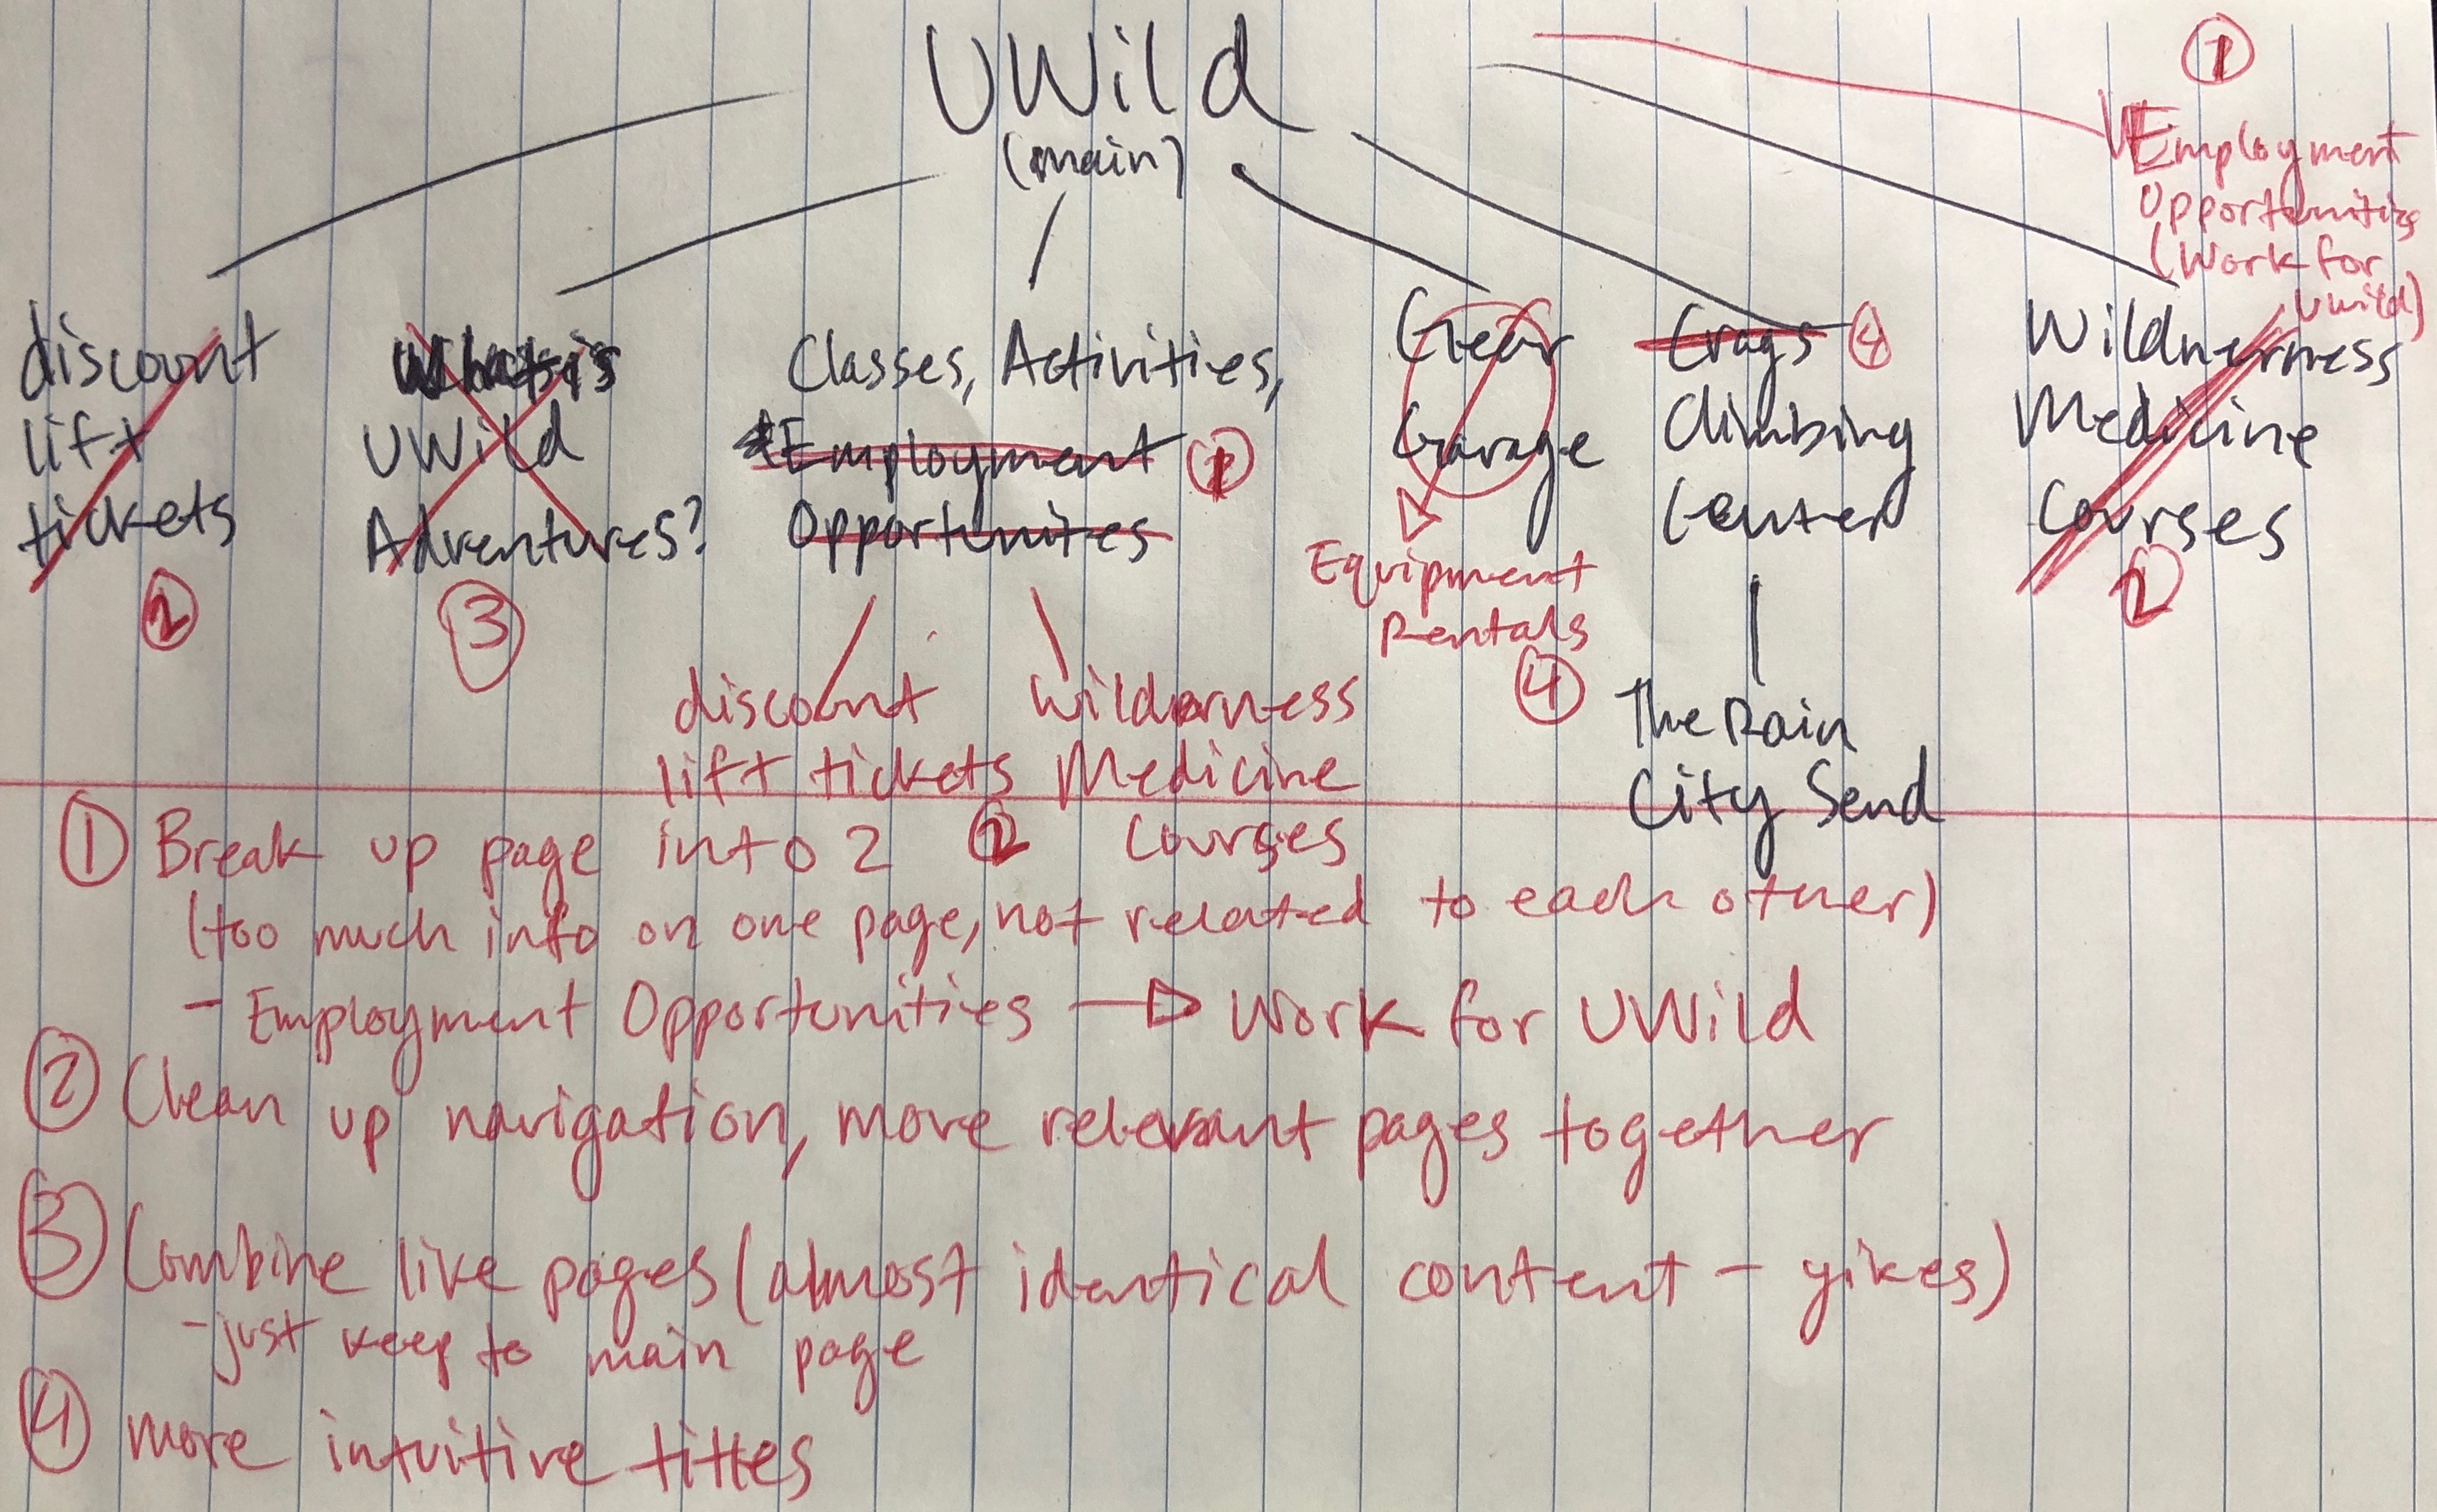 UWild
(main)
1
Employment
Opportunities
(Work for
UWild)
discount
lift
tickets
2
What is
UWild
Adventures?
3
Classes, Activities,
Employment
1
Opportunites
discount
lift tickets
2
Wilderness
Medicine
Courses
Gear
Garage
Equipment
Rentals
4
Crags
4
Climbing
Center
The Rain
City Send
Wildnerness
Medicine
Courses
2
1 Break up page into 2
(too much info on one page, not related to each other)
- Employment Opportunities → Work for UWild
2 Clean up navigation, more relevant pages together
3 Combine like pages (almost identical content - yikes)
- just keep to main page
4 more intuitive titles